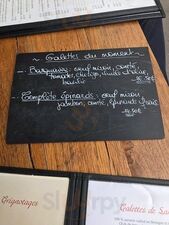 ~ Galettes du moment ~
- Basquaise : oeuf miroir, comté,
tomates, chorizo, huile d'olive,
basilic
- Complète épinards : oeuf miroir
jambon, comté, épinards frais
Grignotages
Galettes de Sa